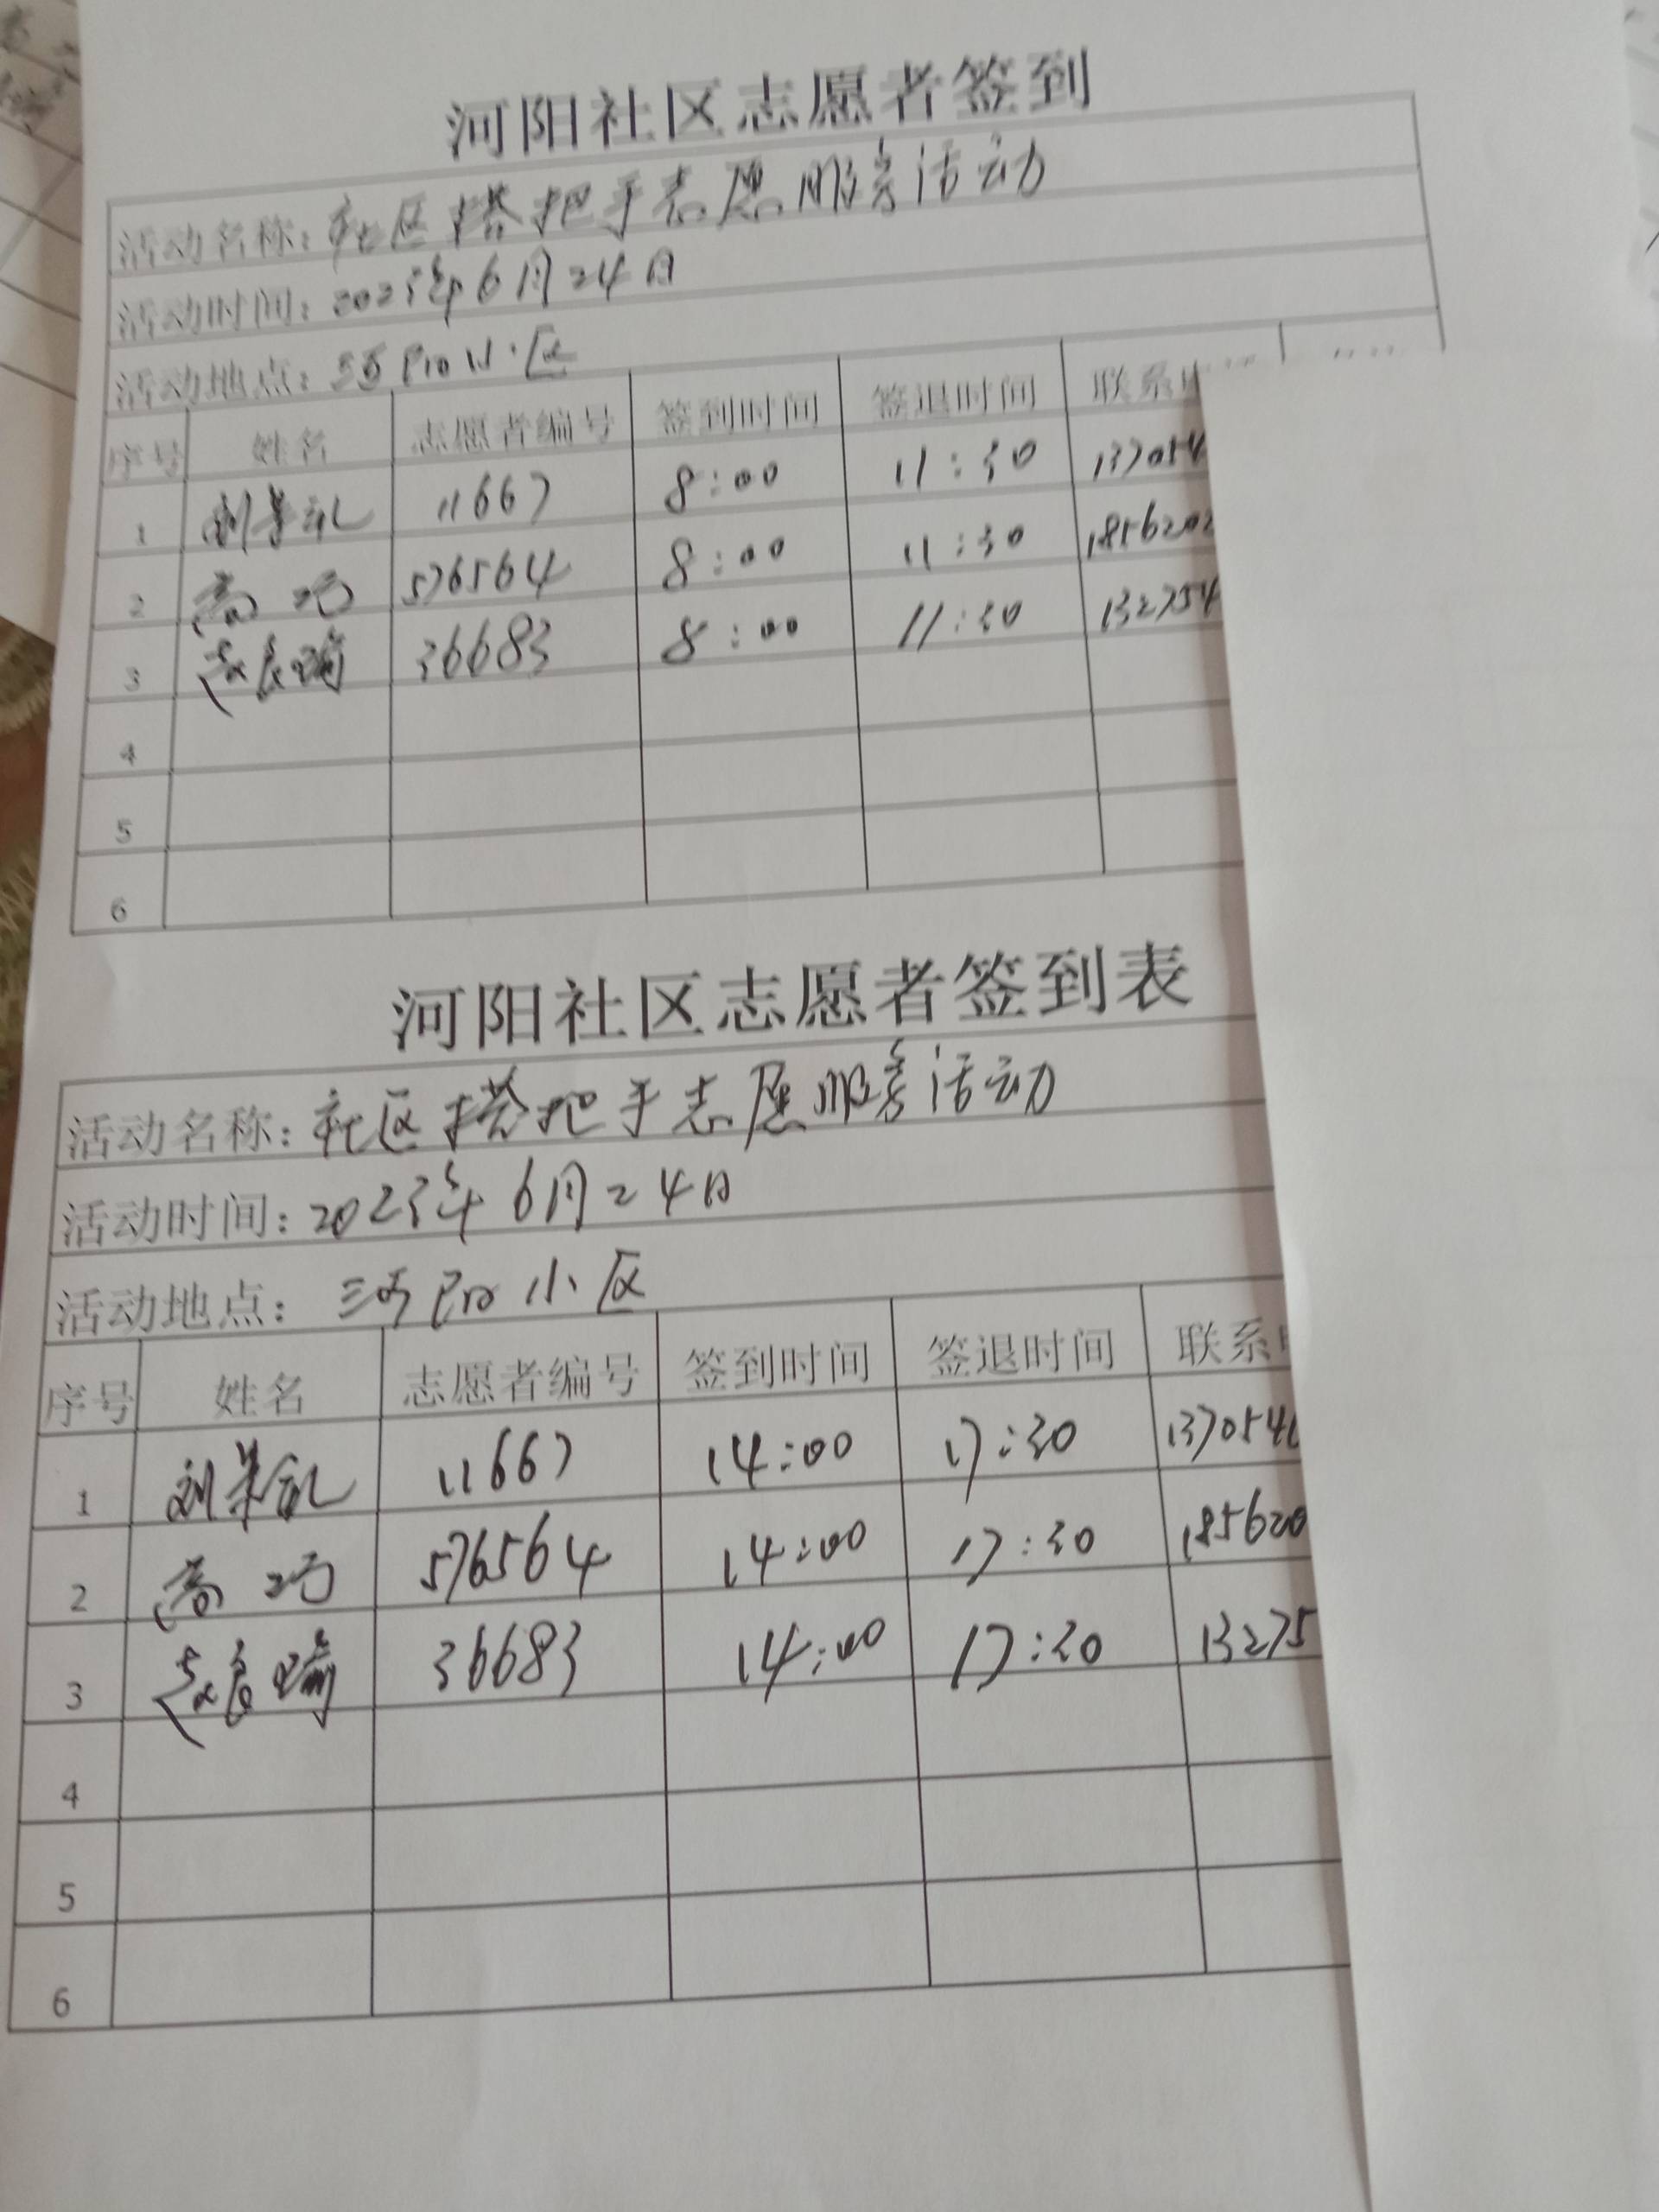 河阳社区志愿者签到
活动名称：社区搭把手志愿服务活动
活动时间：2023年6月24日
活动地点： 小区
序号 姓名 志愿者编号 签到时间 签退时间 联系
1 刘 礼 11667 8:00 11:30 137054
2 高巧 576564 8:00 11:30 1856202
3 赵良瑜 36683 8:00 11:30 132754
4
5
6
河阳社区志愿者签到表
活动名称：社区搭把手志愿服务活动
活动时间：2023年6月24日
活动地点： 小区
序号 姓名 志愿者编号 签到时间 签退时间 联系
1 刘 礼 11667 14:00 17:30 137054
2 高巧 576564 14:00 17:30 185620
3 赵良瑜 36683 14:00 17:30 13275
4
5
6